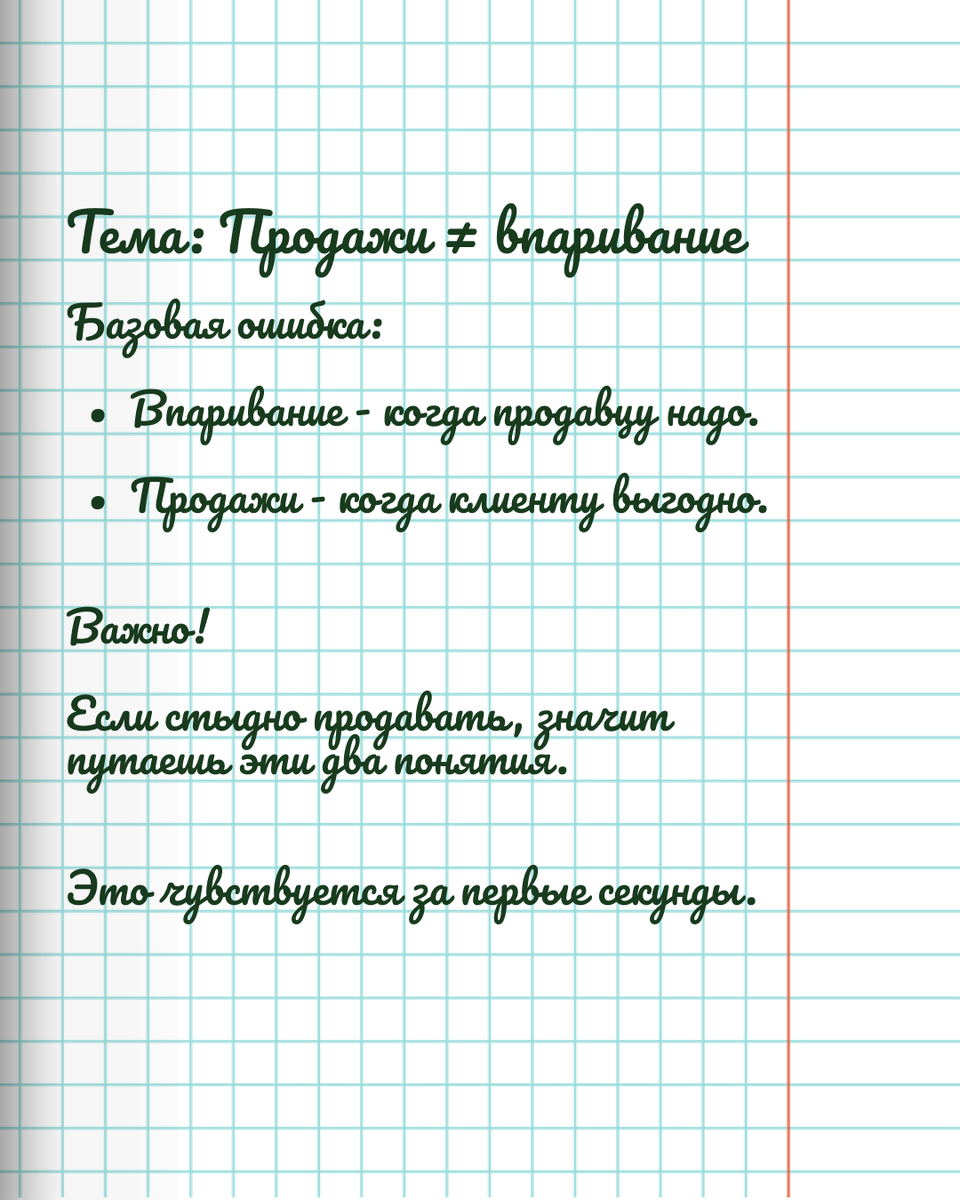 Тема: Продажи ≠ впаривание
Базовая ошибка:
• Впаривание - когда продавцу надо.
• Продажи - когда клиенту выгодно.
Важно!
Если стыдно продавать, значит
путаешь эти два понятия.
Это чувствуется за первые секунды.